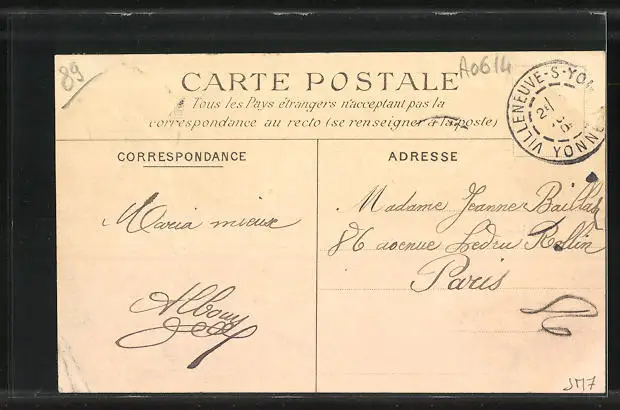 89
A0614
CARTE POSTALE
Tous les Pays étrangers n'acceptant pas la
correspondance au recto (se renseigner à la poste)
VILLENEUVE-S-YON
YONNE
CORRESPONDANCE
ADRESSE
Maria mieux
Albouy
Madame Jeanne
86 avenue Ledru Rollin
Paris